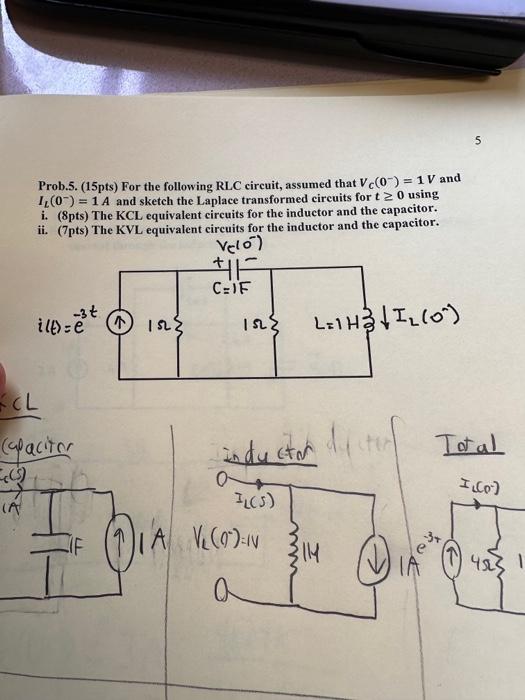 5
Prob.5. (15pts) For the following RLC circuit, assumed that V_C(0⁻) = 1 V and
I_L(0⁻) = 1 A and sketch the Laplace transformed circuits for t ≥ 0 using
i. (8pts) The KCL equivalent circuits for the inductor and the capacitor.
ii. (7pts) The KVL equivalent circuits for the inductor and the capacitor.
Vc(0⁻)
+ −
C=1F
i(t)=e^-3t 1Ω 1Ω L=1H ↓ I_L(0⁻)
KCL
Capacitor inductor Total
I_L(S) I_L(0⁻)
1F 1A V_L(0⁻)=1V 1H 1A e^-3t 4Ω